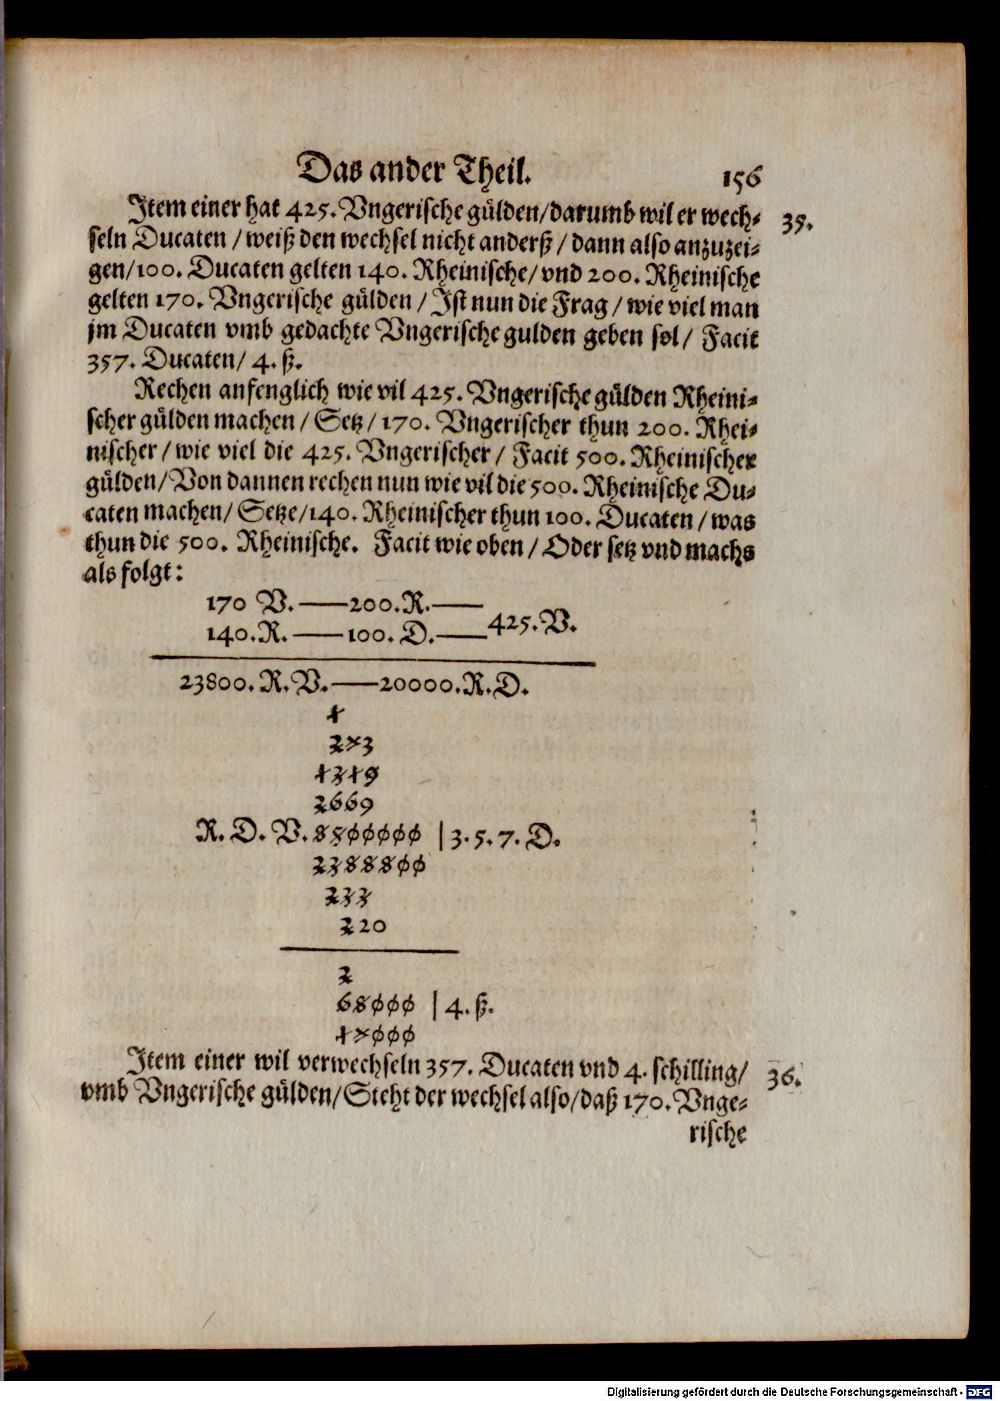 Das ander Theil. 156
Item einer hat 425. Vngerische gülden/darumb wil er wech- 35.
seln Ducaten/weiß den wechsel nicht anderß/dann also anzuzei-
gen/100. Ducaten gelten 140. Rheinische/vnd 200. Rheinische
gelten 170. Vngerische gülden/Ist nun die Frag/wie viel man
jm Ducaten vmb gedachte Vngerische gulden geben sol/ Facit
357. Ducaten/ 4. ß.
Rechen anfenglich wie vil 425. Vngerische gülden Rheini-
scher gülden machen/Setz/170. Vngerischer thun 200. Rhei-
nischer/wie viel die 425. Vngerischer/ Facit 500. Rheinischer
gülden/Von dannen rechen nun wie vil die 500. Rheinische Du-
caten machen/Setze/140. Rheinischer thun 100. Ducaten/was
thun die 500. Rheinische. Facit wie oben/Oder setz vnd machs
als folgt:
170 V.——200.R.——
140.R.——100.D.——425.V.
23800.R.V.——20000.R.D.
1
2×3
1319
2669
R. D. V. 8500000 |3.5.7.D.
2388800
233
220
2
68000 |4.ß.
1×000
Item einer wil verwechseln 357. Ducaten vnd 4. schilling/ 36.
vmb Vngerische gülden/Steht der wechsel also/daß 170. Vnge-
rische
Digitalisierung gefördert durch die Deutsche Forschungsgemeinschaft - DFG